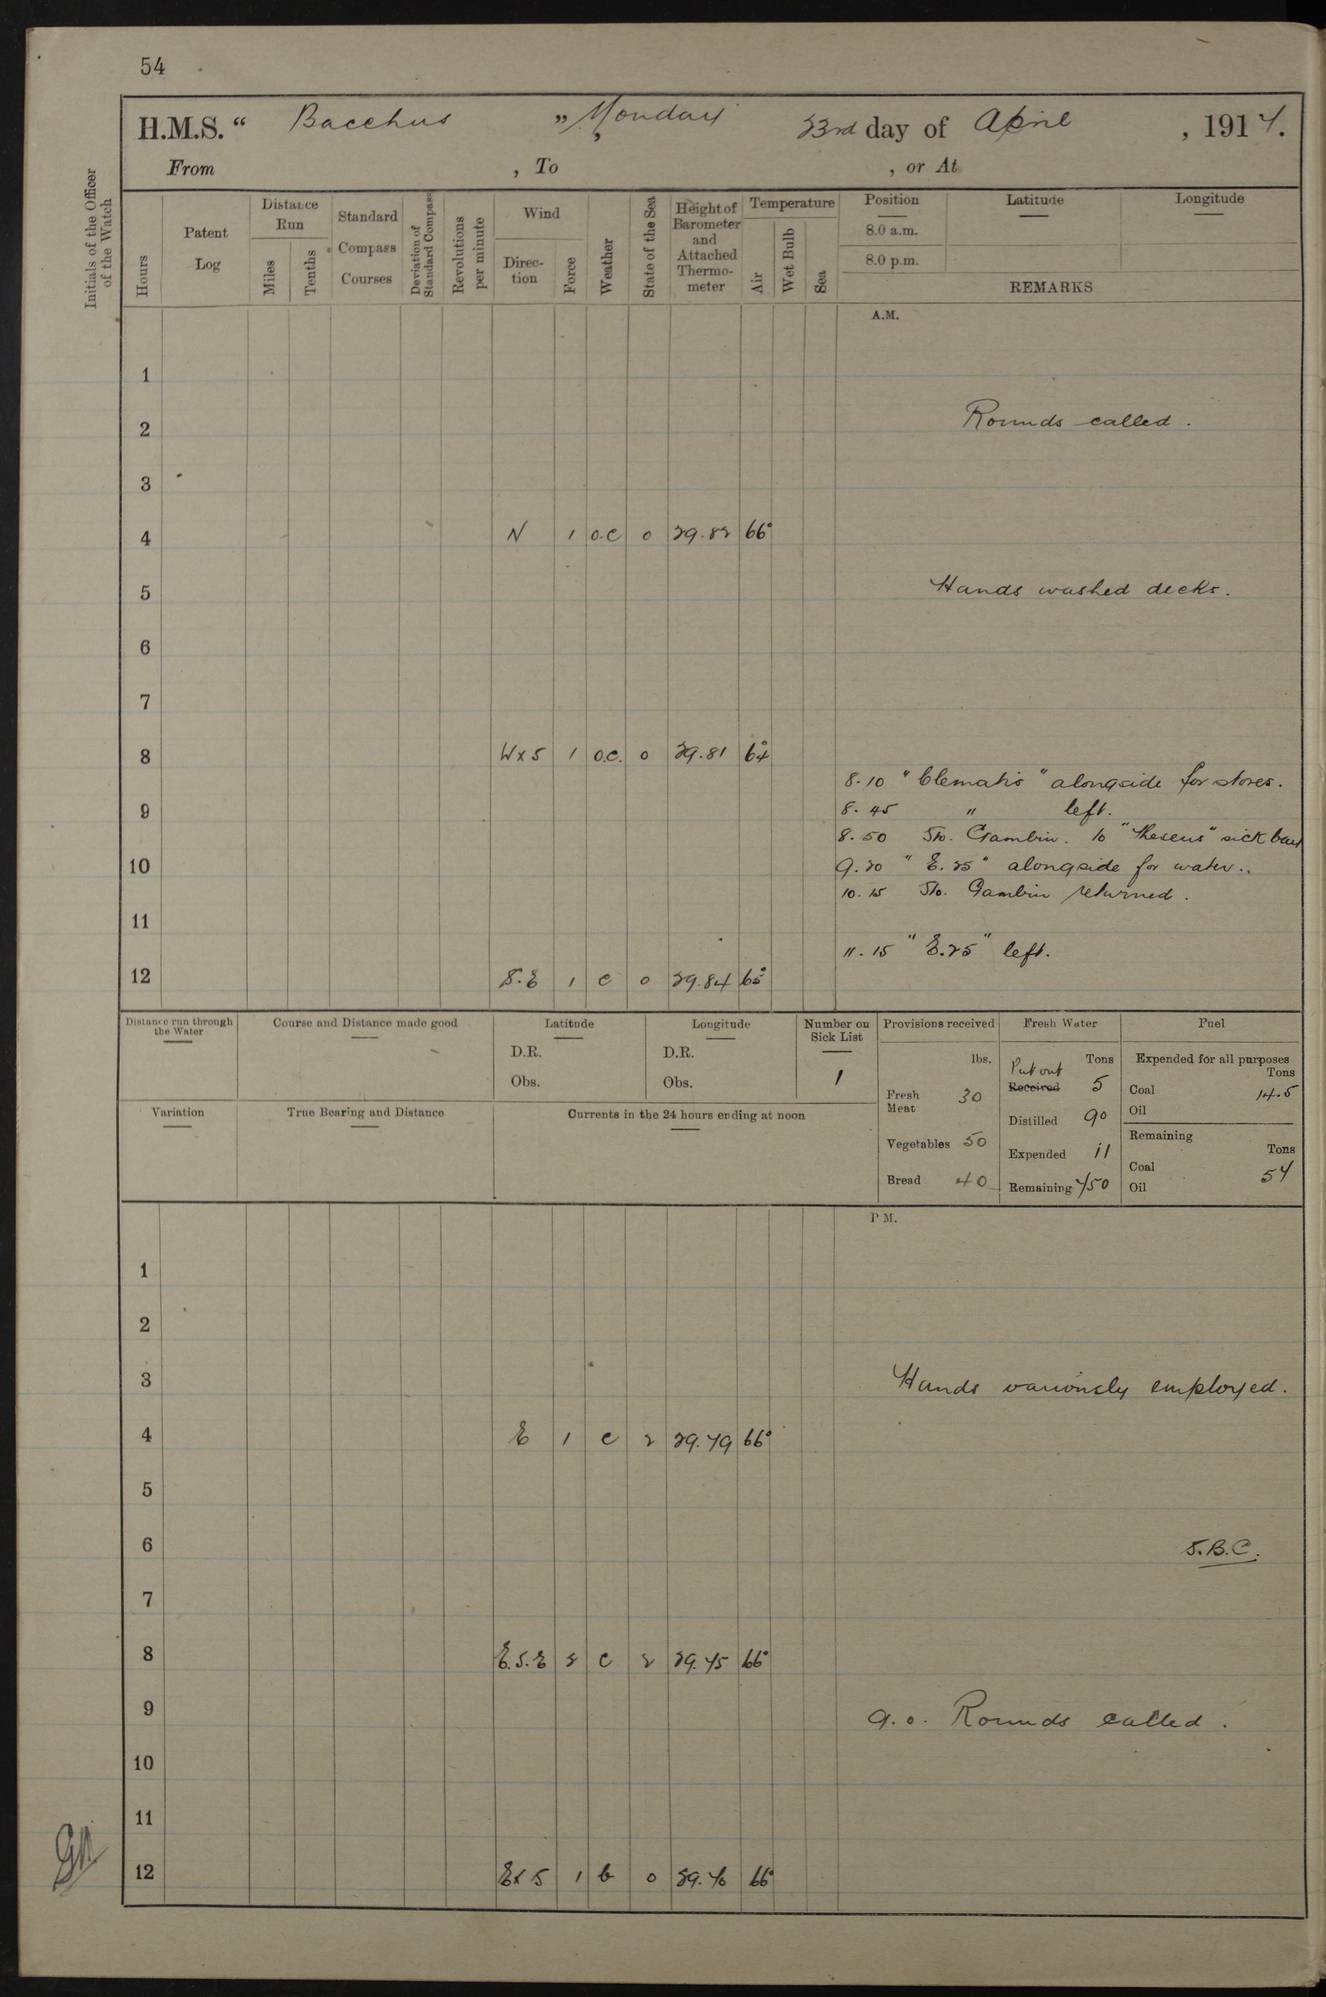 54
H.M.S. “ Bacchus ” , Monday 23rd day of April , 1917.
From , To , or At
Initials of the Officer of the Watch
Hours
Patent Log
Distance Run
Miles
Tenths
Standard Compass Courses
Deviation of Standard Compass
Revolutions per minute
Wind
Direction
Force
Weather
State of the Sea
Height of Barometer and Attached Thermometer
Temperature
Air
Wet Bulb
Sea
Position Latitude Longitude
8.0 a.m.
8.0 p.m.
REMARKS
A.M.
1
2 Rounds called.
3
4 N 1 o.c 0 29.82 66°
5 Hands washed decks.
6
7
8 W x S 1 o.c. 0 29.81 64°
8.10 "Clematis" alongside for stores.
9 8.45 " left.
8.50 Sto. Gambin. to "Theseus" sick bay
10 9.20 "E.25" alongside for water.
10.15 Sto. Gambin returned.
11
11.15 "E.25" left.
12 S.E 1 c 0 29.84 65°
Distance run through the Water
Course and Distance made good
Latitude
D.R.
Obs.
Longitude
D.R.
Obs.
Number on Sick List
1
Variation
True Bearing and Distance
Currents in the 24 hours ending at noon
Provisions received
lbs.
Fresh Meat 30
Vegetables 50
Bread 40
Fresh Water
Tons
Put out
Received 5
Distilled 90
Expended 11
Remaining 750
Fuel
Expended for all purposes
Tons
Coal 14.5
Oil
Remaining
Tons
Coal 57
Oil
P.M.
1
2
3 Hands variously employed.
4 E 1 c 2 29.79 66°
5
6 S.B.C.
7
8 E.S.E 2 c 2 29.75 66°
9 9.0. Rounds called.
10
11
12 E x S 1 b 0 29.76 66°